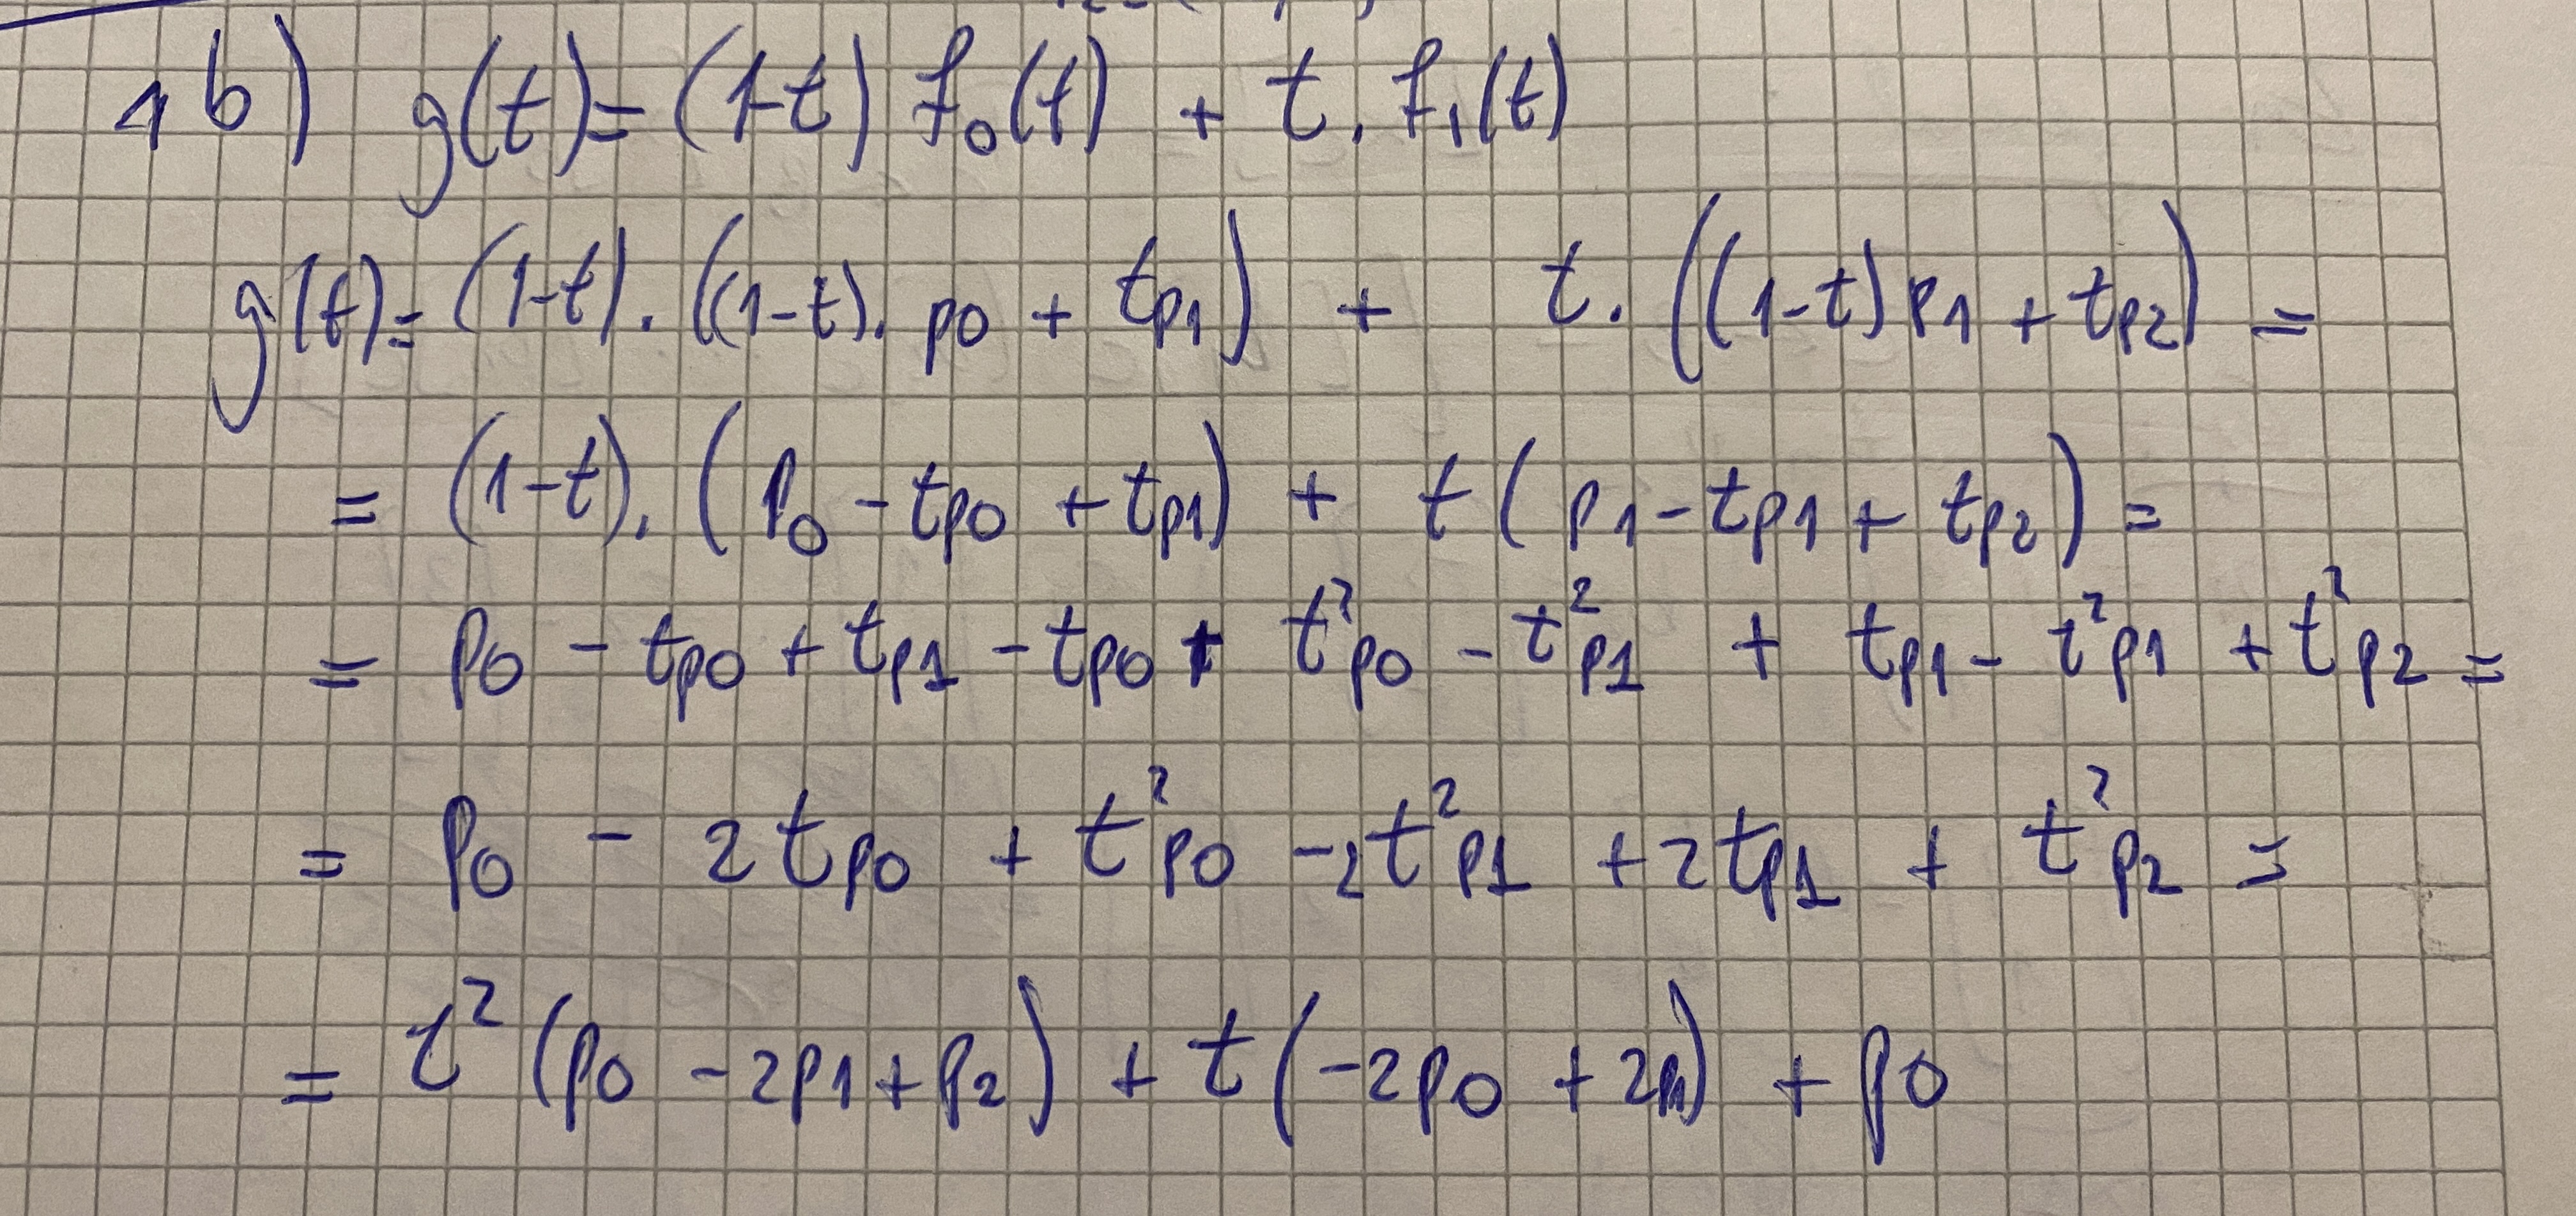 1b) g(t)= (1-t) f₀(t) + t . f₁(t)
g(t)= (1-t) . ((1-t) . p0 + tp1) + t . ((1-t)p1 + tp2) =
= (1-t) . (p₀ - tp0 + tp1) + t ( p1 - tp1 + tp2) =
= p0 - tp0 + tp1 - tp0 + t²p0 - t²p1 + tp1 - t²p1 + t²p2 =
= p0 - 2tp0 + t²p0 - 2t²p1 + 2tp1 + t²p2 =
= t² (p0 - 2p1 + p2) + t (-2p0 + 2p1) + p0